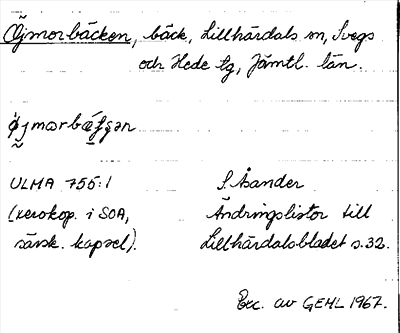 Öjmorbäcken, bäck, Lillhärdals sn, Svegs
och Hede tg, Jämtl. län.
ULMA 755:1 S. Åsander
(xerokop. i SOA, Ändringslistor till
särsk. kapsel). Lillhärdalsbladet s. 32.
Exc. av GEHL 1967.